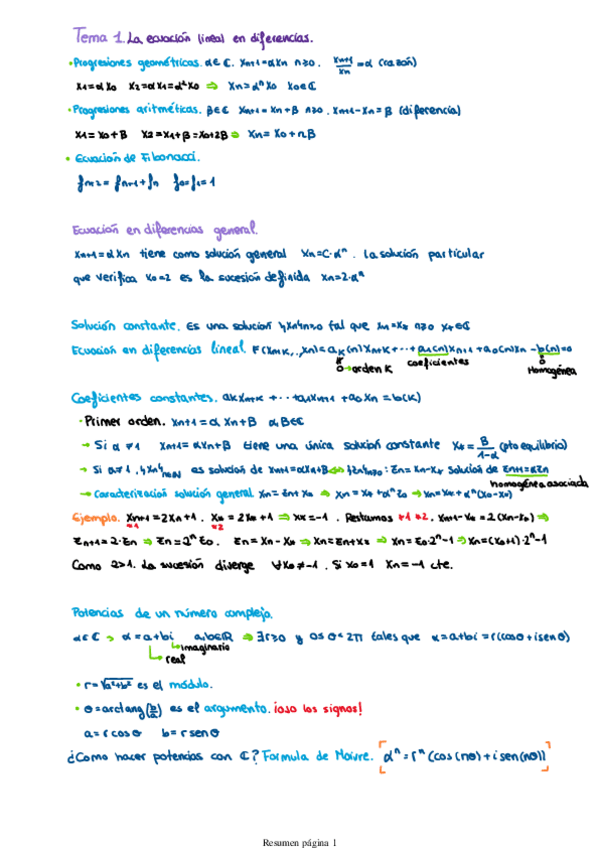 Tema 1. La ecuación lineal en diferencias.
• Progresiones geométricas. α∈ℂ. Xn+1=αXn n≥0. Xn+1/Xn=α (razón)
X1=αX0 X2=αX1=α²X0 ⇒ Xn=αⁿX0 X0∈ℂ
• Progresiones aritméticas. β∈ℂ Xn+1=Xn+β n≥0. Xn+1-Xn=β (diferencia)
X1=X0+β X2=X1+β=X0+2β ⇒ Xn=X0+nβ
• Ecuación de Fibonacci.
fn+2=fn+1+fn f0=f1=1
Ecuación en diferencias general.
Xn+1=αXn tiene como solución general Xn=C·αⁿ. La solución particular
que verifica X0=2 es la sucesión definida Xn=2·αⁿ
Solución constante. Es una solución {Xn}n≥0 tal que Xn=X* n≥0 X*∈ℂ
Ecuación en diferencias lineal. F(Xn+k,...,Xn)=ak(n)Xn+k+···+a1(n)Xn+1+a0(n)Xn-b(n)=0
orden K coeficientes Homogénea
Coeficientes constantes. akXn+k+···+a1Xn+1+a0Xn=b(k)
• Primer orden. Xn+1=αXn+β α,β∈ℂ
→ Si α≠1 Xn+1=αXn+β tiene una única solución constante X*=β/(1-α) (pto equilibrio)
→ Si α≠1, {Xn}n∈ℕ es solución de Xn+1=αXn+β ⇔ {Zn}n≥0: Zn=Xn-X* solución de Zn+1=αZn
homogénea asociada
→ Caracterización solución general Xn=Zn+X* ⇒ Xn=X*+αⁿZ0 ⇒ Xn=X*+αⁿ(X0-X*)
Ejemplo. Xn+1=2Xn+1. X*=2X*+1 ⇒ X*=-1. Restamos *1 *2. Xn+1-X*=2(Xn-X*) ⇒
*1 *2
Zn+1=2·Zn ⇒ Zn=2ⁿZ0. Zn=Xn-X* ⇒ Xn=Zn+X* ⇒ Xn=Z0·2ⁿ-1 ⇒ Xn=(X0+1)·2ⁿ-1
Como 2>1. La sucesión diverge ∀X0≠-1. Si X0=1 Xn=-1 cte.
Potencias de un número complejo.
α∈ℂ → α=a+bi a,b∈ℝ ⇒ ∃r≥0 y 0≤θ<2π tales que α=a+bi=r(cosθ+isenθ)
imaginario
real
• r=√(a²+b²) es el módulo.
• θ=arctang(b/a) es el argumento. ¡ojo los signos!
a=rcosθ b=rsenθ
¿Como hacer potencias con ℂ? Formula de Moivre. αⁿ=rⁿ(cos(nθ)+isen(nθ))
Resumen página 1